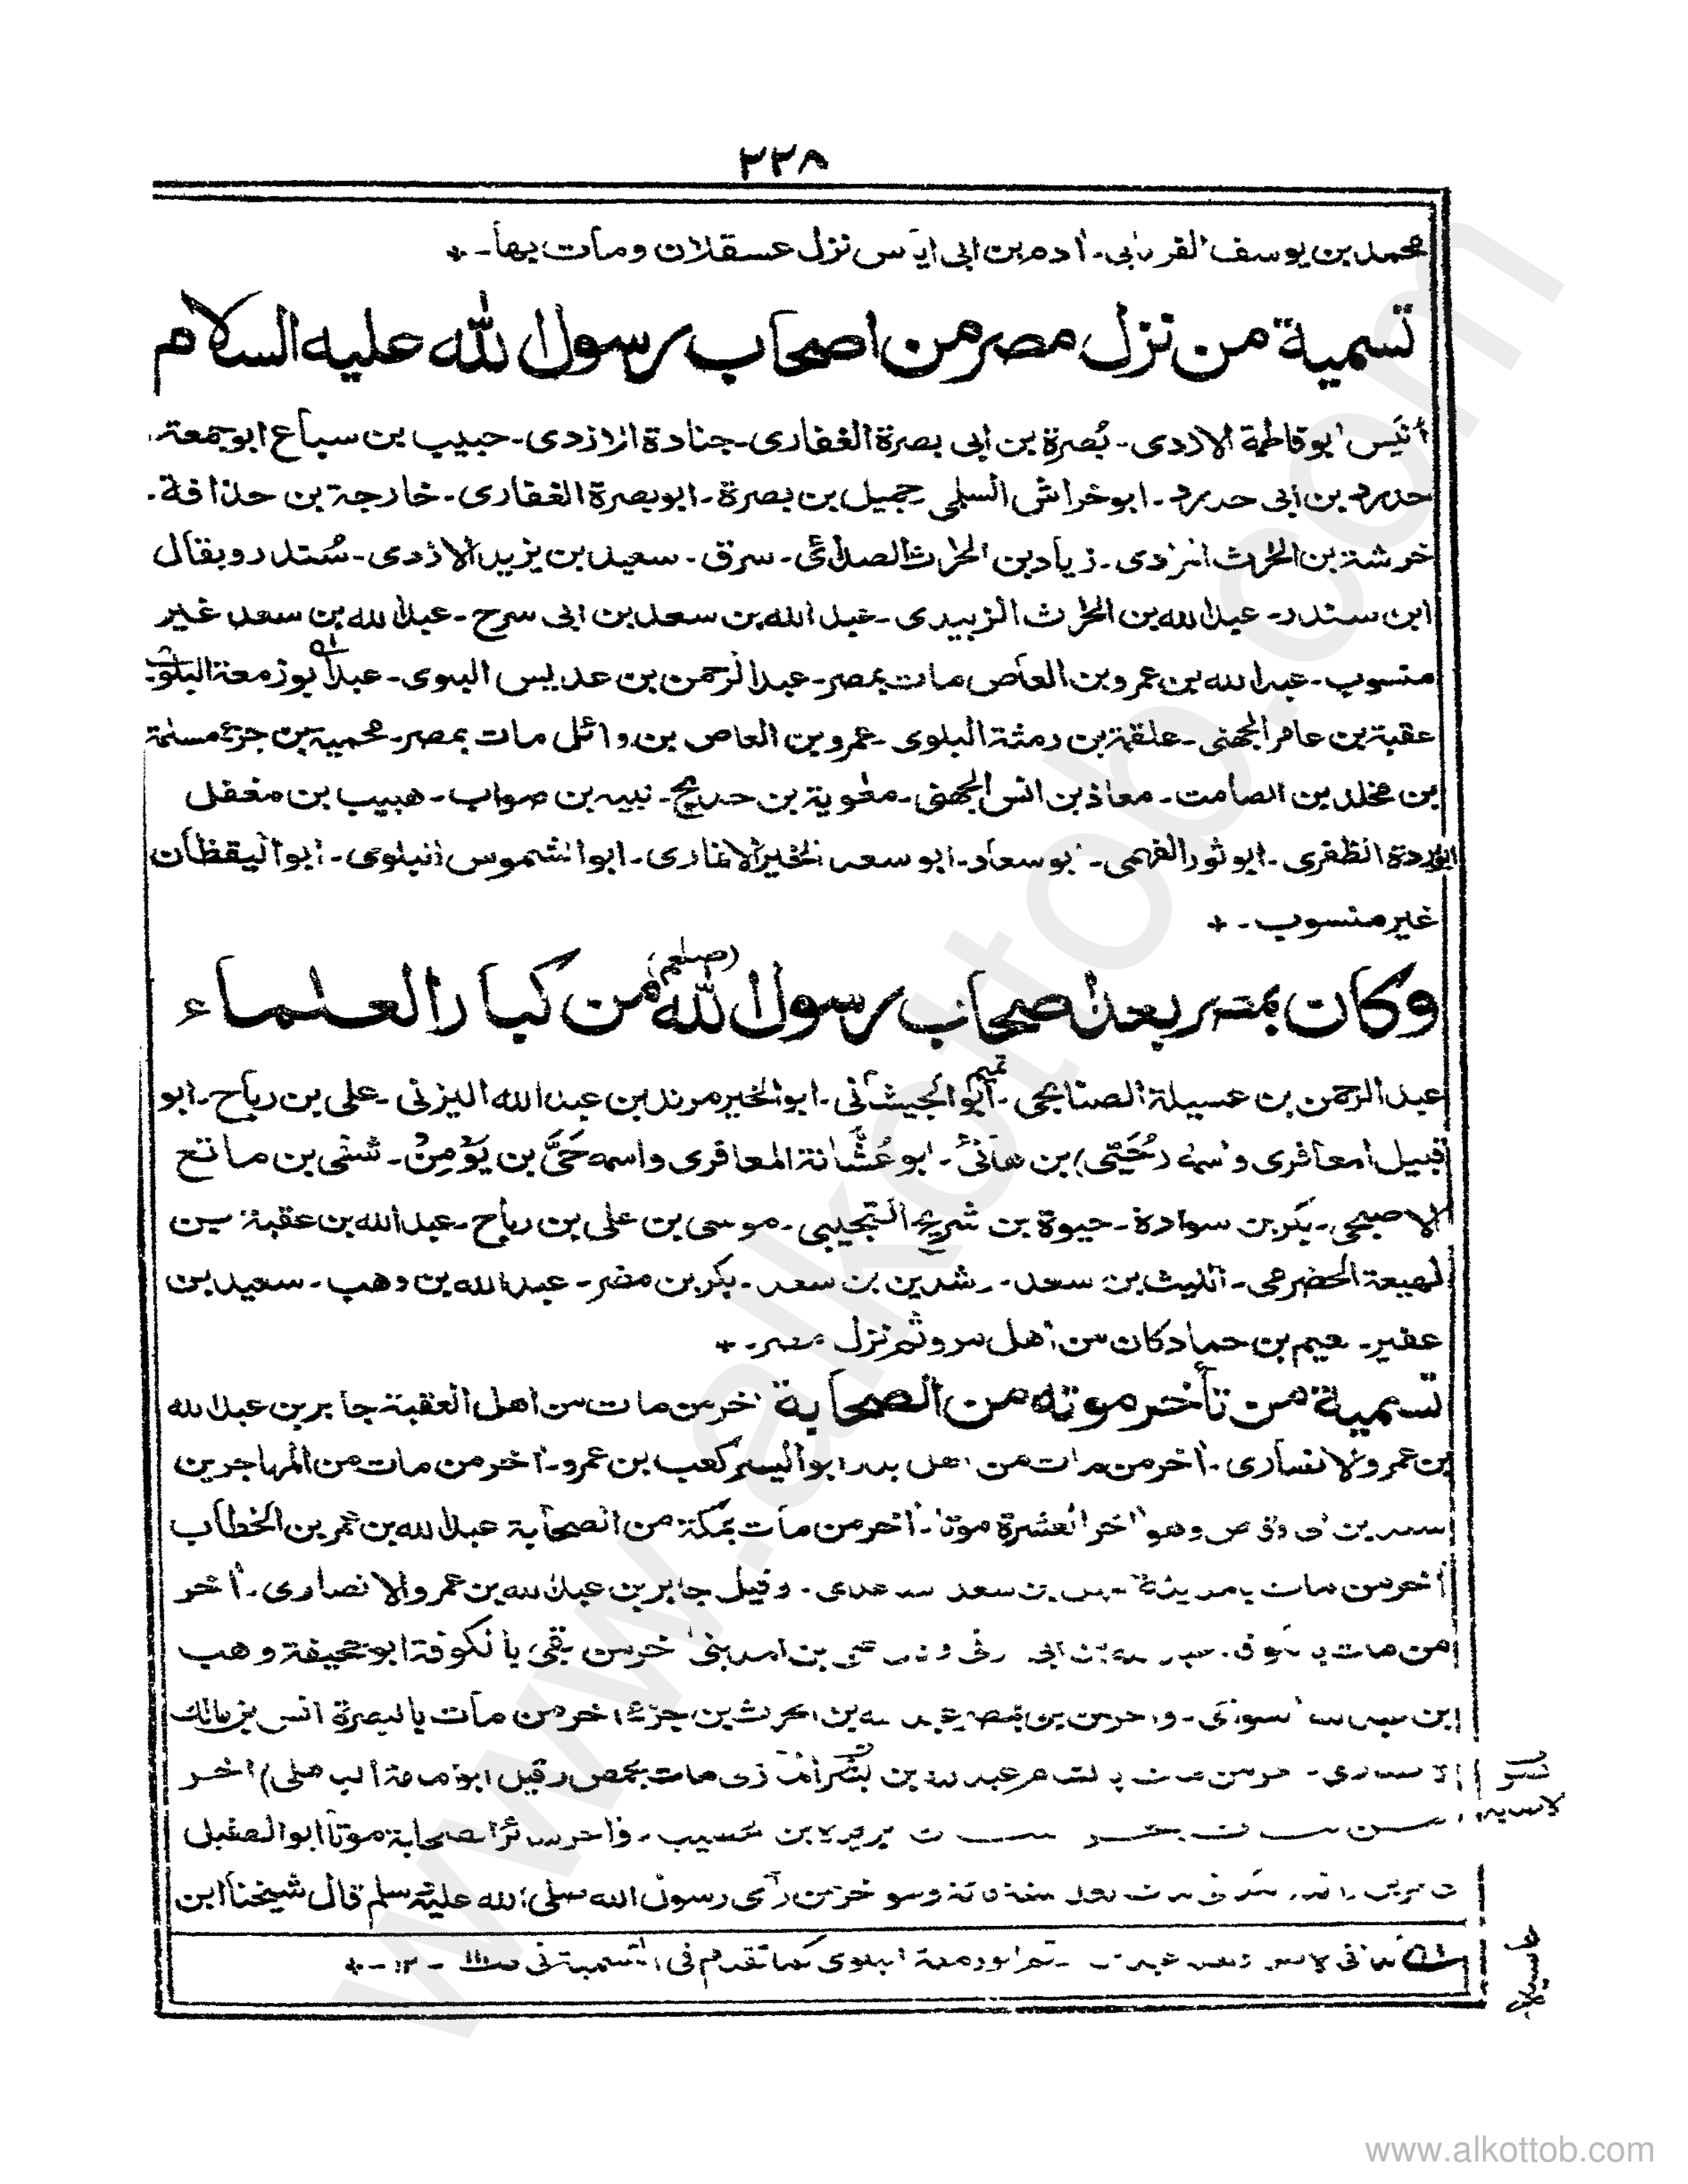 ٢٢٨
محمد بن يوسف الفريابي۔ آدم بن ابى اياس نزل عسقلان ومات بها۔+
تسمية من نزل مصر من اصحاب رسول الله عليه السلام
أنيس ابو فاطمة الازدى۔ بُصرة بن ابى بصرة الغفارى۔ جنادة الازدى۔ حبيب بن سباع ابو جمعة۔
حدرد بن ابى حدرد۔ ابو خراش السلمى جميل بن بصرة۔ ابو بصرة الغفارى۔ خارجة بن حذافة۔
خرشة بن الحٰرث الازدى۔ زياد بن الحٰرث الصدائى۔ سرق۔ سعيد بن يزيد الازدى۔ سُندر ويقال
ابن سندر۔ عبد الله بن الحٰرث الزبيدى۔ عبد الله بن سعد بن ابى سرح۔ عبد الله بن سعد غير
منسوب۔ عبد الله بن عمرو بن العاص مات بمصر۔ عبد الرحمن بن عديس البلوى۔ عبد ابو زمعة البلوى
عقبة بن عامر الجهنى۔ علقمة بن رمثة البلوى۔ عمرو بن العاص بن وائل مات بمصر۔ محمية بن جزء مسلمة
بن مخلد بن الصامت۔ معاذ بن انس الجهنى۔ معٰوية بن حديج۔ نبيه بن صواب۔ هبيب بن مغفل
ابو بردة الظفرى۔ ابو ثور الفهمى۔ ابو سعاد۔ ابو سعد الخير الانمارى۔ ابو الشموس البلوى۔ ابو اليقظان
غير منسوب۔+
وكان بمصر بعد اصحاب رسول الله (صلعم) من كبار العلماء
عبد الرحمن بن عسيلة الصنابحى۔ ابو تميم الجيشانى۔ ابو الخير مرثد بن عبد الله اليزنى۔ على بن رباح۔ ابو
قبيل المعافرى واسمه (حُيَيّ) بن هانئ۔ ابو عُشّانة المعافرى واسمه حَيّ بن يُؤمِن۔ شفى بن ماتع
الاصبحى۔ بكر بن سوادة۔ حيوة بن شريح التجيبى۔ موسى بن على بن رباح۔ عبد الله بن عقبة بن
لهيعة الحضرمى۔ الليث بن سعد۔ رشدين بن سعد۔ بكر بن مضر۔ عبد الله بن وهب۔ سعيد بن
عفير۔ نعيم بن حماد كان من اهل مرو ثم نزل مصر۔+
تسمية من تأخر موته من الصحابة اخر من مات من اهل العقبة جابر بن عبد الله
بن عمرو الانصارى۔ اخر من مات من اهل بدر ابو اليسر كعب بن عمرو۔ اخر من مات من المهاجرين
سعد بن ابى وقاص وهو اخر العشرة موتا۔ اخر من مات بمكة من الصحابة عبد الله بن عمر بن الخطاب
اخر من مات بالمدينة سهل بن سعد الساعدى۔ وقيل جابر بن عبد الله بن عمرو الانصارى۔ اخر
من مات بالكوفة عبد الله بن ابى اوفى بن المدينى اخر من بقى بالكوفة ابو جحيفة وهب
ابن عبد الله السوائى۔ واخر من بمصر عبد الله بن الحرث بن جزء اخر من مات بالبصرة انس بن مالك
الانصارى۔ اخر من مات بالشام عبد الله بن بُسر المازنى مات بحمص (قيل ابو امامة الباهلى) اخر
من مات بخراسان بريدة بن حصيب۔ واخر سائر الصحابة موتا ابو الطفيل
مات بعد سنة مائة وهو اخر من رأى رسول الله صلى الله عليه وسلم قال شيخنا ابن
ابو زمعة البلوى كما تقدم فى التسمية فى ۔١٢۔+
www.alkottob.com